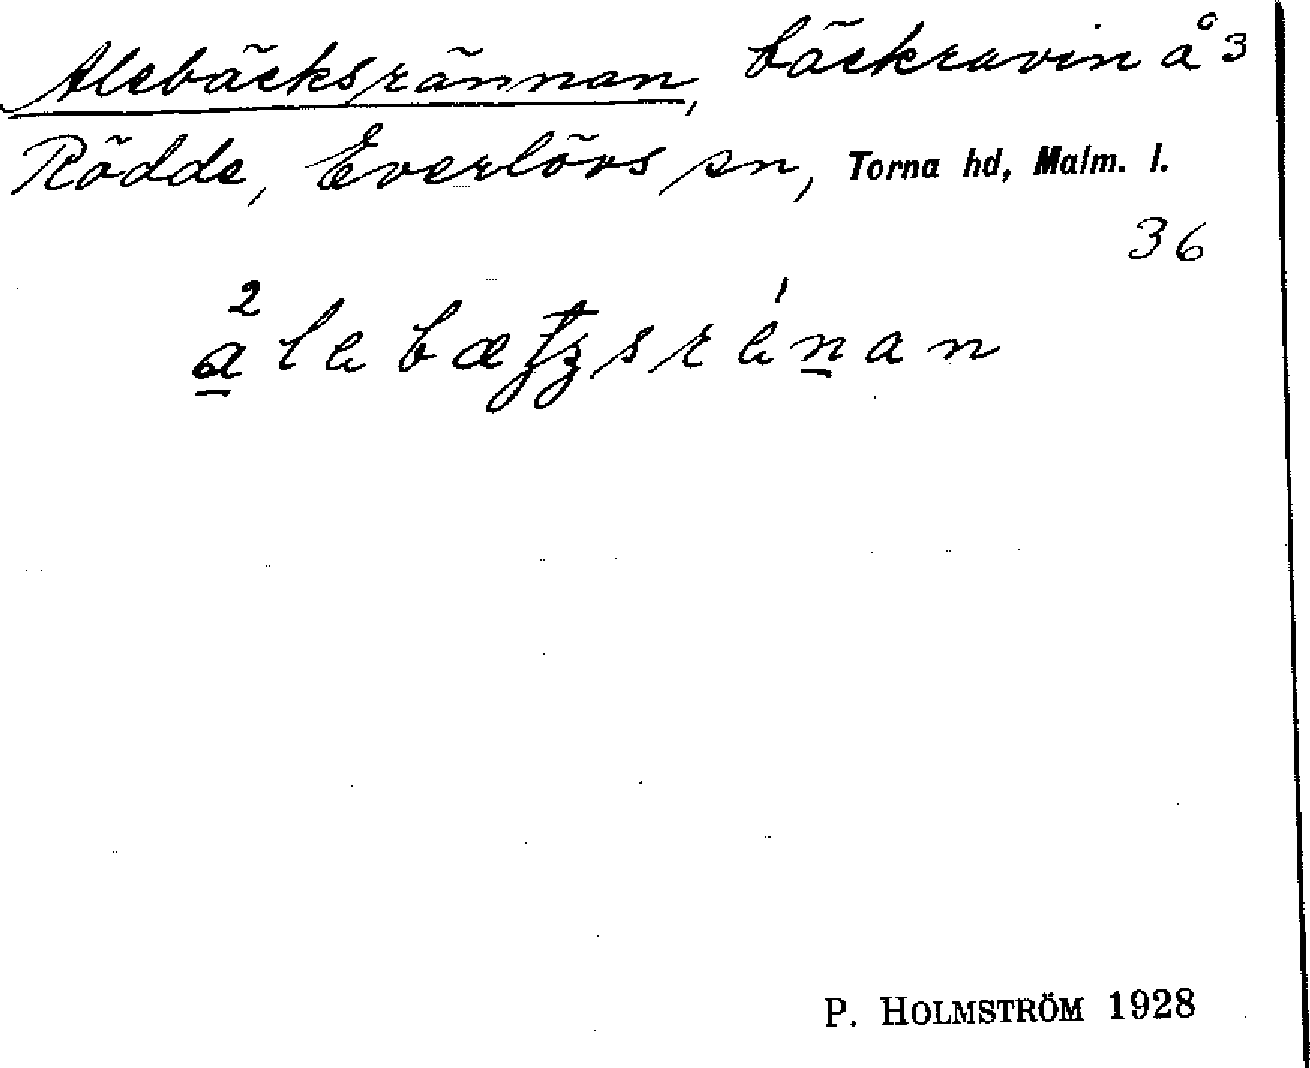 Alebäcksrännan, bäckravin å 3
Rödde, Everlövs sn, Torna hd, Malm. l.
36
P. HOLMSTRÖM 1928